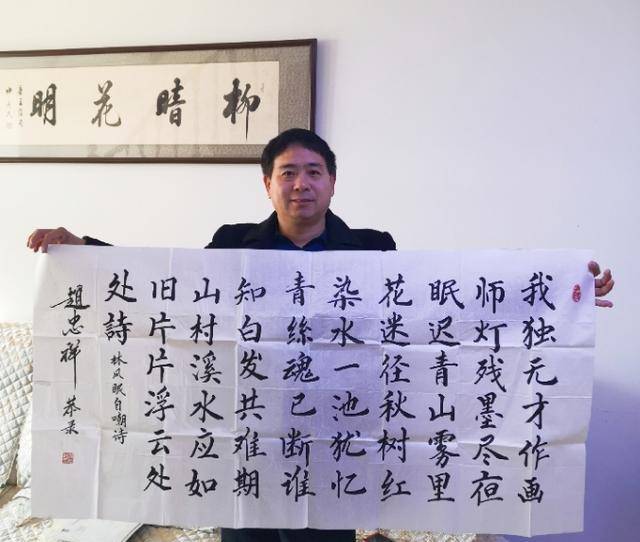 柳暗花明
我独无才作画
师灯残墨尽夜
眠迟青山雾里
花迷径秋树红
染水一池犹忆
青絲魂已断谁
知白发共难期
山村溪水应如
旧片片浮云处
处詩
林风眠自嘲诗
趙忠祥 恭录